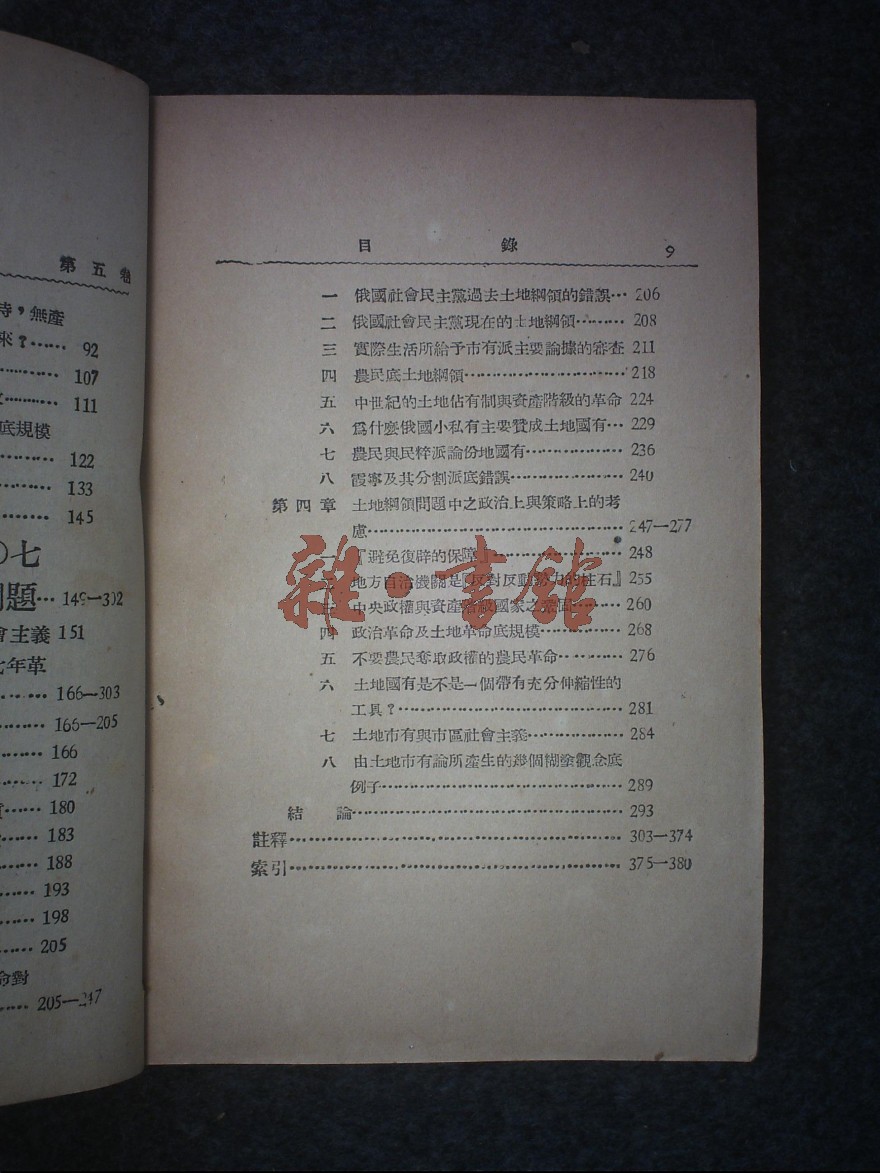 第五卷
時，無產
來？…… 92
………… 107
………… 111
底規模
………… 122
………… 133
………… 145
〇七
問題… 149—302
會主義 151
七年革
………… 166—303
………… 166—205
………… 166
………… 172
…… 180
…… 183
…… 188
…… 193
…… 198
…… 205
命對
…… 205—247
目錄 9
一 俄國社會民主黨過去土地綱領的錯誤… 206
二 俄國社會民主黨現在的土地綱領……… 208
三 實際生活所給予市有派主要論據的審查 211
四 農民底土地綱領………………………… 218
五 中世紀的土地佔有制與資產階級的革命 224
六 爲什麼俄國小私有主要贊成土地國有… 229
七 農民與民粹派論份地國有……………… 236
八 霞寧及其分割派底錯誤………………… 240
第四章 土地綱領問題中之政治上與策略上的考
慮………………………………………… 247—277
一 『避免復辟的保障』…………………… 248
二 地方自治機關是『反對反動勢力的柱石』 255
三 中央政權與資產階級國家之鞏固……… 260
四 政治革命及土地革命底規模…………… 268
五 不要農民奪取政權的農民革命………… 276
六 土地國有是不是一個帶有充分伸縮性的
工具？…………………………………… 281
七 土地市有與市區社會主義……………… 284
八 由土地市有論所產生的幾個糊塗觀念底
例子……………………………………… 289
結論……………………………………… 293
註釋……………………………………………… 303—374
索引……………………………………………… 375—380
雜·書館